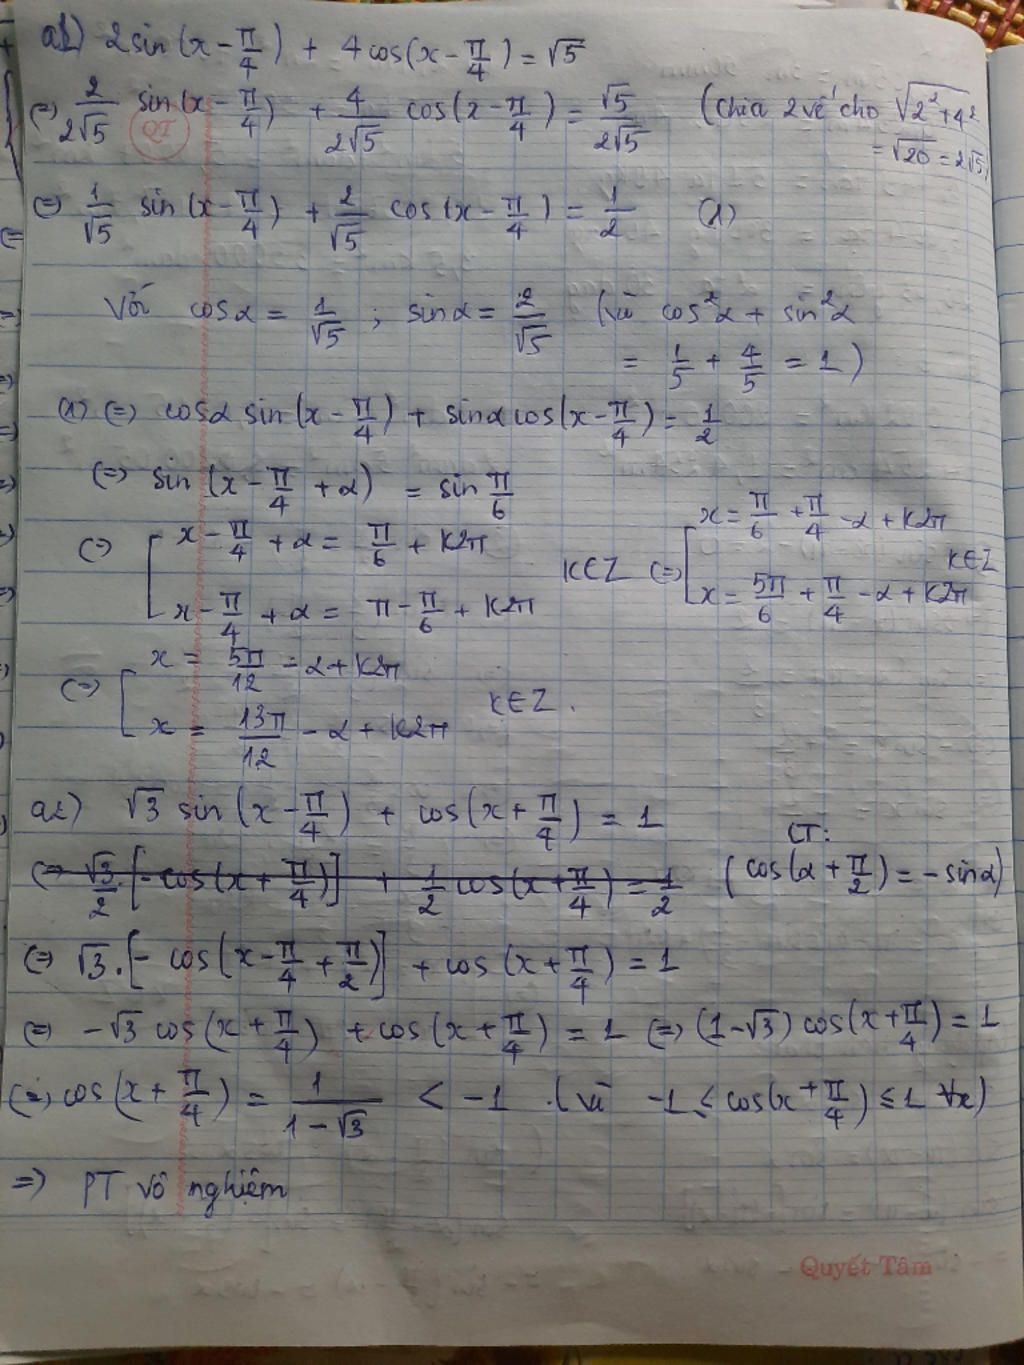 a1) 2sin(x - π/4) + 4cos(x - π/4) = √5
(=) 2/2√5 sin(x - π/4) + 4/2√5 cos(x - π/4) = √5/2√5 (chia 2 vế cho √2²+4²
= √20 = 2√5)
QT
(=) 1/√5 sin(x - π/4) + 2/√5 cos(x - π/4) = 1/2 (1)
Với cosα = 1/√5 ; sinα = 2/√5 (vì cos²α + sin²α
= 1/5 + 4/5 = 1)
(1) (=) cosα sin(x - π/4) + sinα cos(x - π/4) = 1/2
(=) sin(x - π/4 + α) = sin π/6
(=) [ x - π/4 + α = π/6 + k2π
x - π/4 + α = π - π/6 + k2π
k∈Z (=) [ x = π/6 + π/4 - α + k2π
x = 5π/6 + π/4 - α + k2π
k∈Z
(=) [ x = 5π/12 - α + k2π
x = 13π/12 - α + k2π
k∈Z.
a2) √3 sin(x - π/4) + cos(x + π/4) = 1
CT:
(=) √3/2 . [- cos(x + π/4)] + 1/2 cos(x + π/4) = 1/2 (cos(α + π/2) = - sinα)
(=) √3 . [- cos(x - π/4 + π/2)] + cos(x + π/4) = 1
(=) -√3 cos(x + π/4) + cos(x + π/4) = 1 (=) (1 - √3) cos(x + π/4) = 1
(=) cos(x + π/4) = 1/1 - √3 < -1 . (vì -1 ≤ cos(x + π/4) ≤ 1 ∀x)
=) PT vô nghiệm
Quyết Tâm